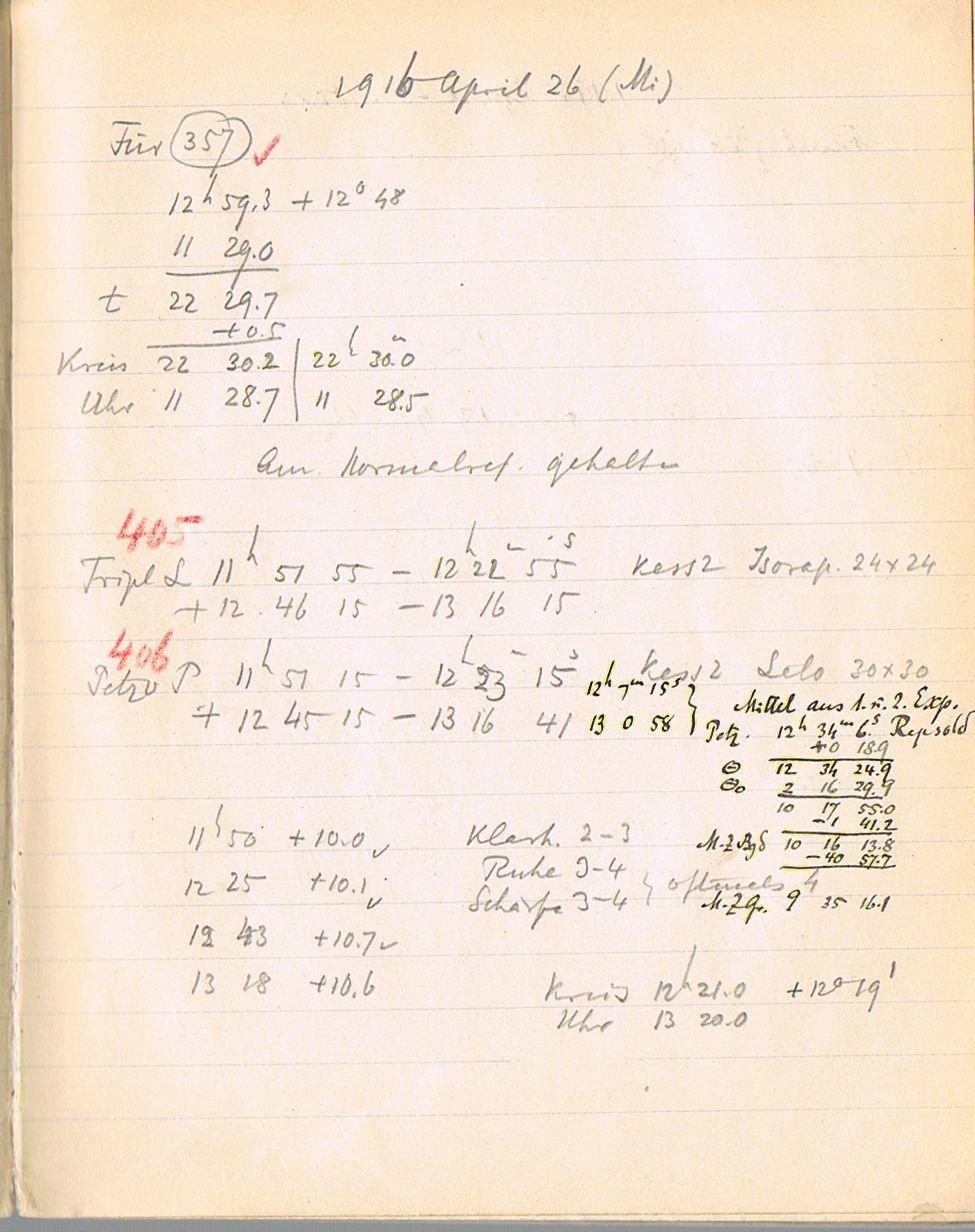 1916 April 26 (Mi)
Für 357 ✓
12h 59.3 + 12° 48
11 29.0
t 22 29.7
+0.5
Kreis 22 30.2 | 22h 30.m0
Uhr 11 28.7 | 11 28.5
Am Normalref. gehalten
405
Tripl L 11h 51 55 – 12h 22m 55s Kass 2 Isorap. 24x24
+ 12 46 15 – 13 16 15
406
Petzv P 11h 51 15 – 12h 23m 15s Kass 2 30x30
+ 12 45 15 – 13 16 41
12h 7m 15s
13 0 58
Mittel aus 1. u. 2. Exp.
Petz. 12h 34m 6.s Repsold
+0 18.9
Θ 12 34 24.9
Θo 2 16 29.9
10 17 55.0
–1 41.2
M.Z.Bgd 10 16 13.8
–40 57.7
M.Z.Gr. 9 35 16.1
11h 50 +10.0 ✓
12 25 +10.1 ✓
12 43 +10.7 ✓
13 18 +10.6
Klarh. 2–3
Ruhe 3–4
Schärfe 3–4 } oftmals 4
Kreis 12h 21.0 +12° 19'
Uhr 13 20.0